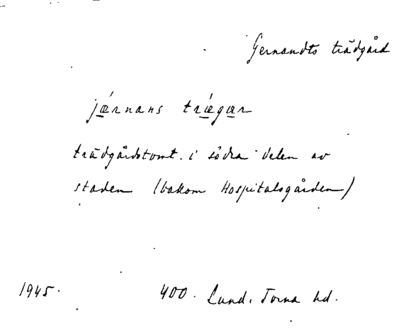 Gernandts trädgård
jǽrnans trǽgar
trädgårdstomt i södra delen av
staden (bakom Hospitalsgården)
1945. 400. Lund. Torna hd.